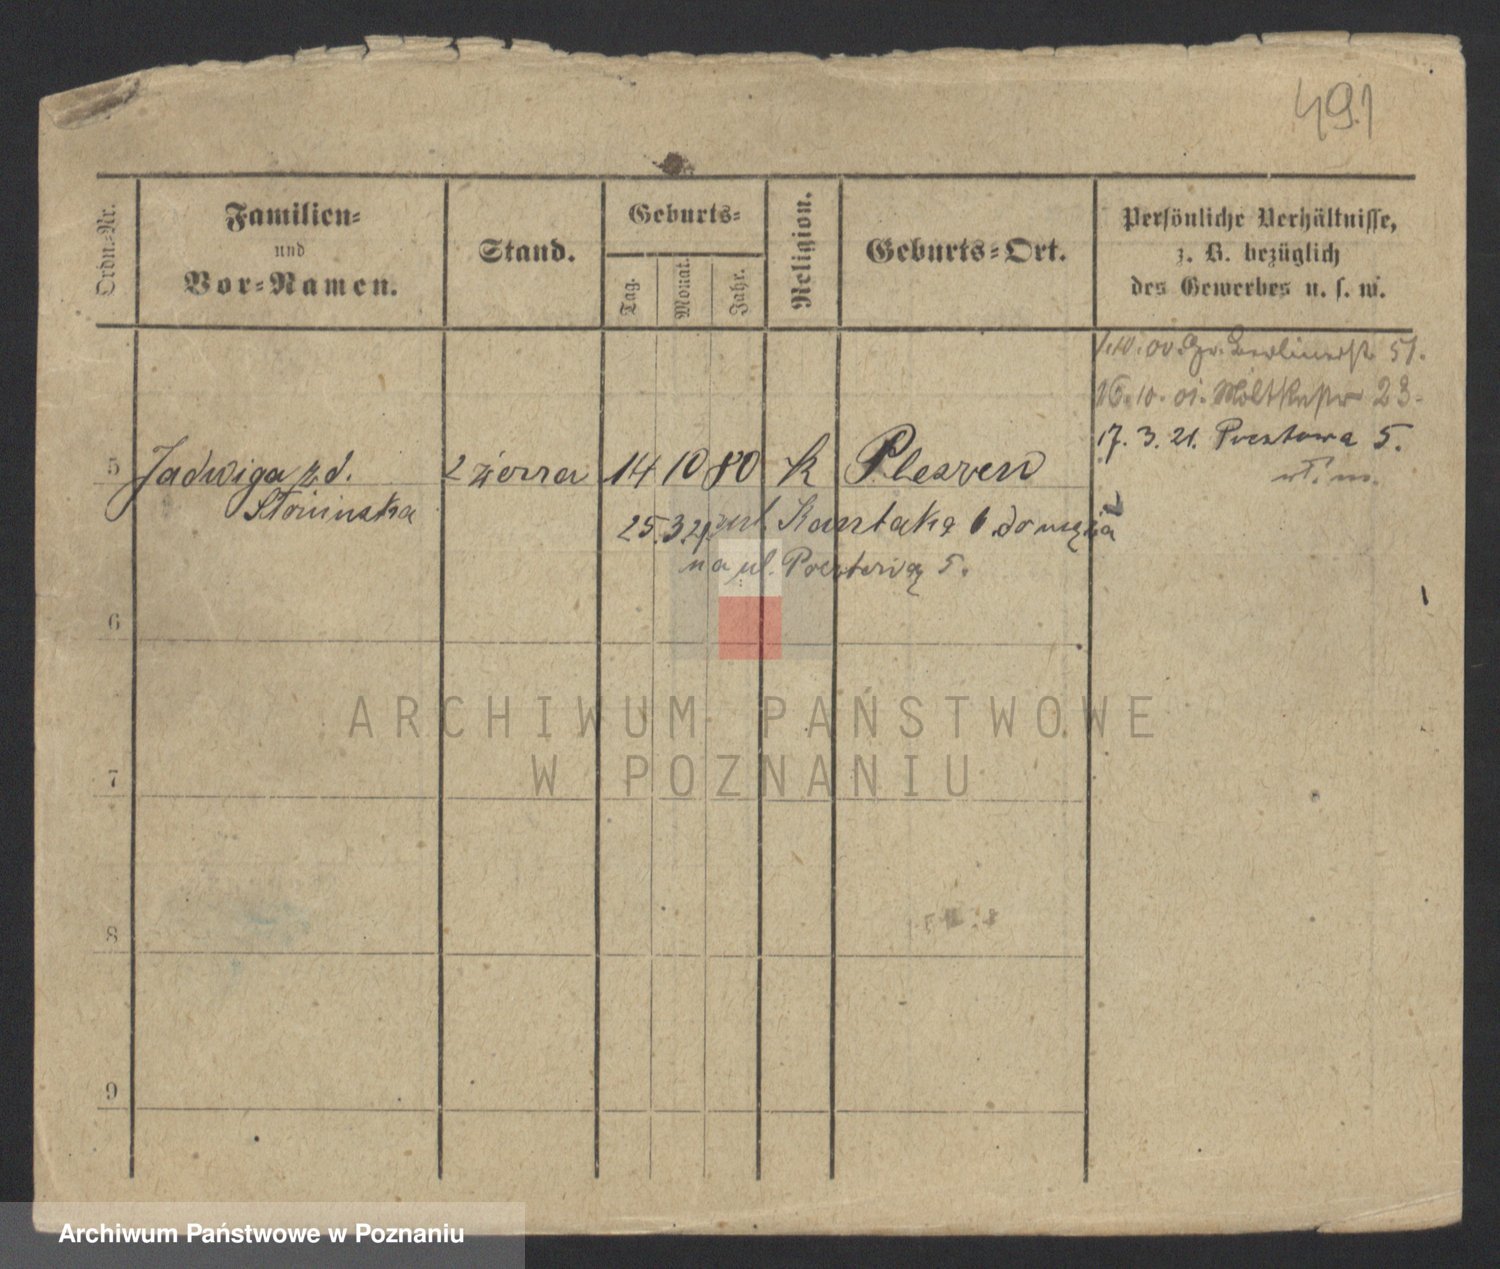 491
Ordn.-Nr.
Familien-
und
Vor-Namen.
Stand.
Geburts-
Tag.
Monat.
Jahr.
Religion.
Geburts-Ort.
Persönliche Verhältnisse,
z. B. bezüglich
des Gewerbes u. s. w.
1.10.00. Gr. Berlinerst. 51.
16.10.01. Moltkestr 23.
17.3.21. Pocztowa 5.
5 Jadwiga z d. 2 żona 14 10 80 k Pleszen
25.3.21 ul. Kantaka 6 do męża
na ul. Pocztową 5.
6
7
8
9
ARCHIWUM PAŃSTWOWE
W POZNANIU
Archiwum Państwowe w Poznaniu